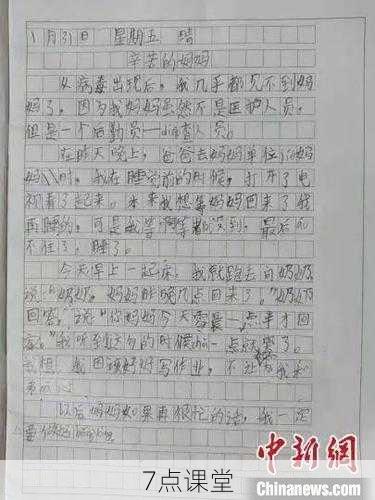 1月31日 星期五 晴
辛苦的妈妈
从病毒出现后,我几乎都见不到妈
妈了。因为我妈妈虽然不是医护人员,
但是一个后勤员一diao查人员。
在昨天晚上,爸爸去妈妈单位jie妈
妈时。我在睡觉前的时候,打开了电
视看了起来。本来我想等妈妈回来了我
再睡的。可是我等啊等都没到,最后
不住了,睡了。
今天早上一起床,我就跑去问奶奶
说:“奶奶,妈妈昨晚几点回来了。”奶奶
回答:说“你妈妈今天凌晨一点半才回
家。”我听至这句的时候
我想,我因该好好写作业,不
以后妈妈如果再很忙的话,我一定
要
中新网
www.chinanews.com
7点课堂